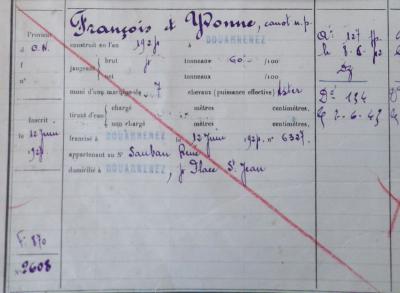 François et Yvonne, canot n.p.
Provient
d O.N.
f
n°
construit en l'an 192 à DOUARNENEZ
jaugeant brut tonneaux 60 /100
net tonneaux /100
muni d'une machine de 7 chevaux (puissance effective) Aster
tirant d'eau chargé mètres centimètres.
non chargé mètres centimètres.
Inscrit
le 12 Juin
192
francisé à DOUARNENEZ le 12 Juin 192 n° 6327.
appartenant au Sr Sauban René
domicilié à DOUARNENEZ, Place St Jean
F. 870
N° 2608
Qr 127
le 8-6-
Dz
Dn 134